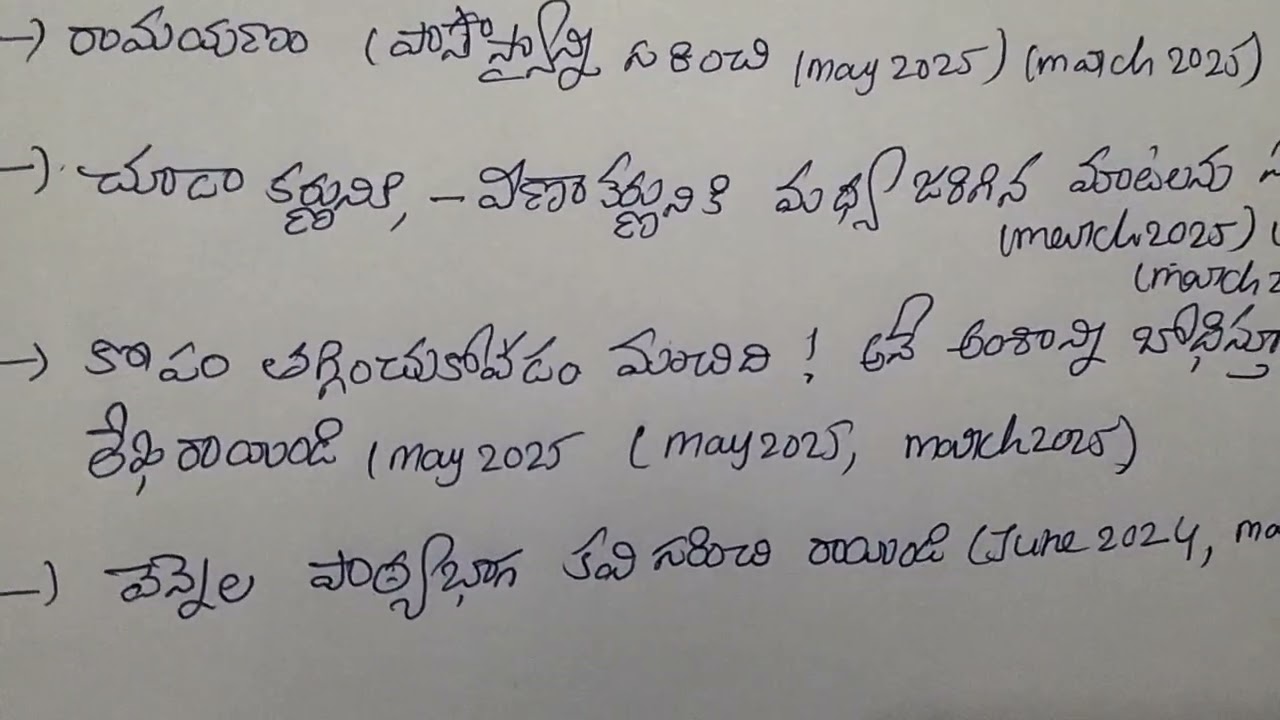 → రామయణం (ప్రాశస్త్యాన్ని సరించి (may 2025) (march 2025)
→ చూడా కర్ణునికి, – వీణాకర్ణునికి మధ్య జరిగిన మాటలను
(march 2025) (
(march 2
→ కోపం తగ్గించుకోవడం మంచిది ! అనే అంశాన్ని బోధిస్తూ
లేఖ రాయండి (may 2025 (may 2025, march 2025)
→ వెన్నెల పాఠ్యభాగ కవి సరించి రాయండి (June 2024, ma